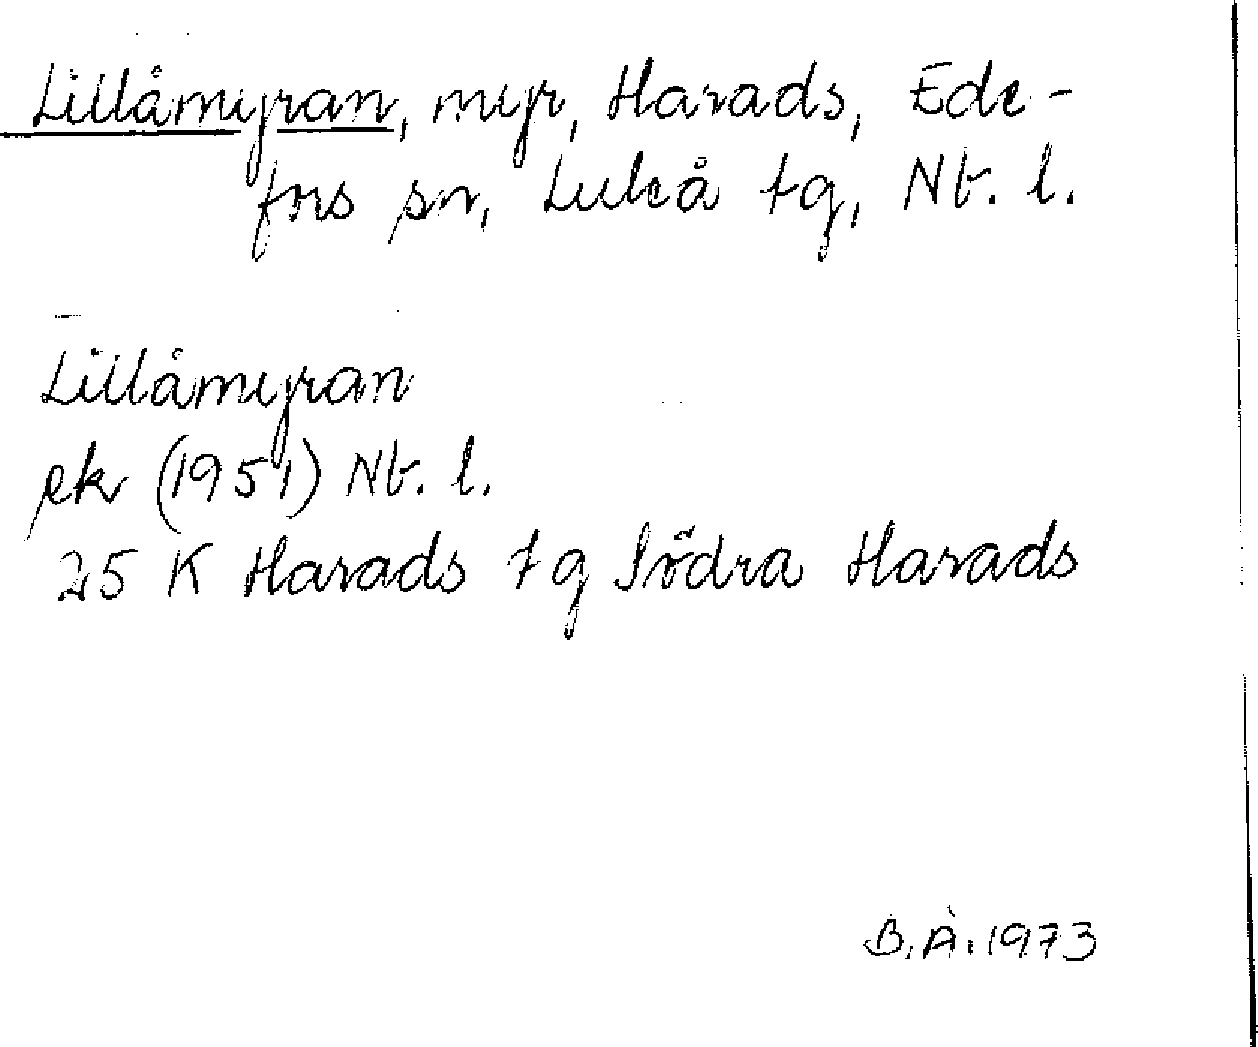 Lillåmyran, myr, Harads, Ede-
fors sn, Luleå tg, Nb. l.
Lillåmyran
ek (1951) Nb. l.
25 K Harads tg Södra Harads
B.Å. 1973